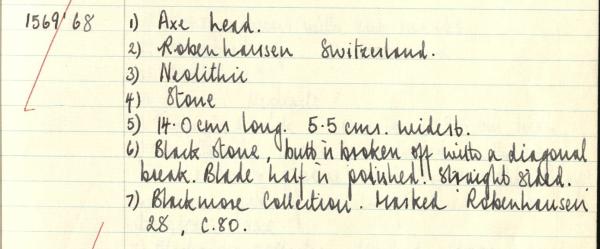 1569'68 1) Axe head.
2) Robenhausen Switzerland.
3) Neolithic
4) Stone
5) 14.0cms long. 5.5 cms. widest.
6) Black stone, butt is broken off with a diagonal
break. Blade half is polished. Straight sided.
7) Blackmore Collection. Marked 'Robenhausen'
28, C.80.